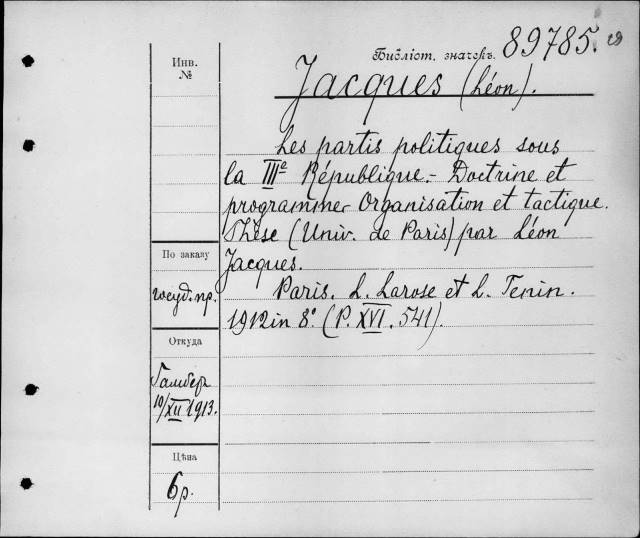 Библіот. значекъ. 89785.
Инв.
№
Jacques (Léon).
Les partis politiques sous
la IIIe République. - Doctrine et
programme - Organisation et tactique.
Thèse (Univ. de Paris) par Léon
Jacques.
Paris. L. Larose et L. Tenin.
1912 in 8° (P. XVI. 541).
По заказу
госуд. пр.
Откуда
Гамбер
10/XII 1913.
Цѣна
6 р.